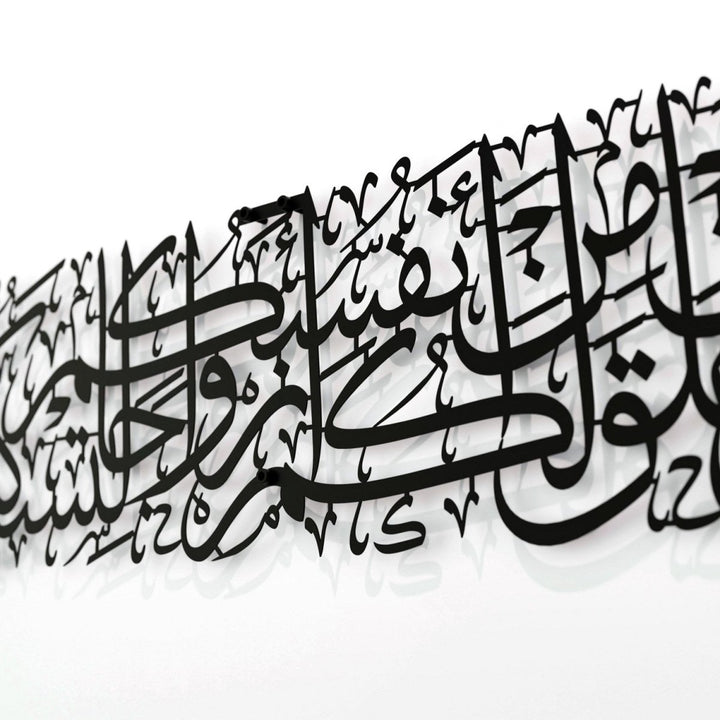 خلق لكم من أنفسكم أزواجا